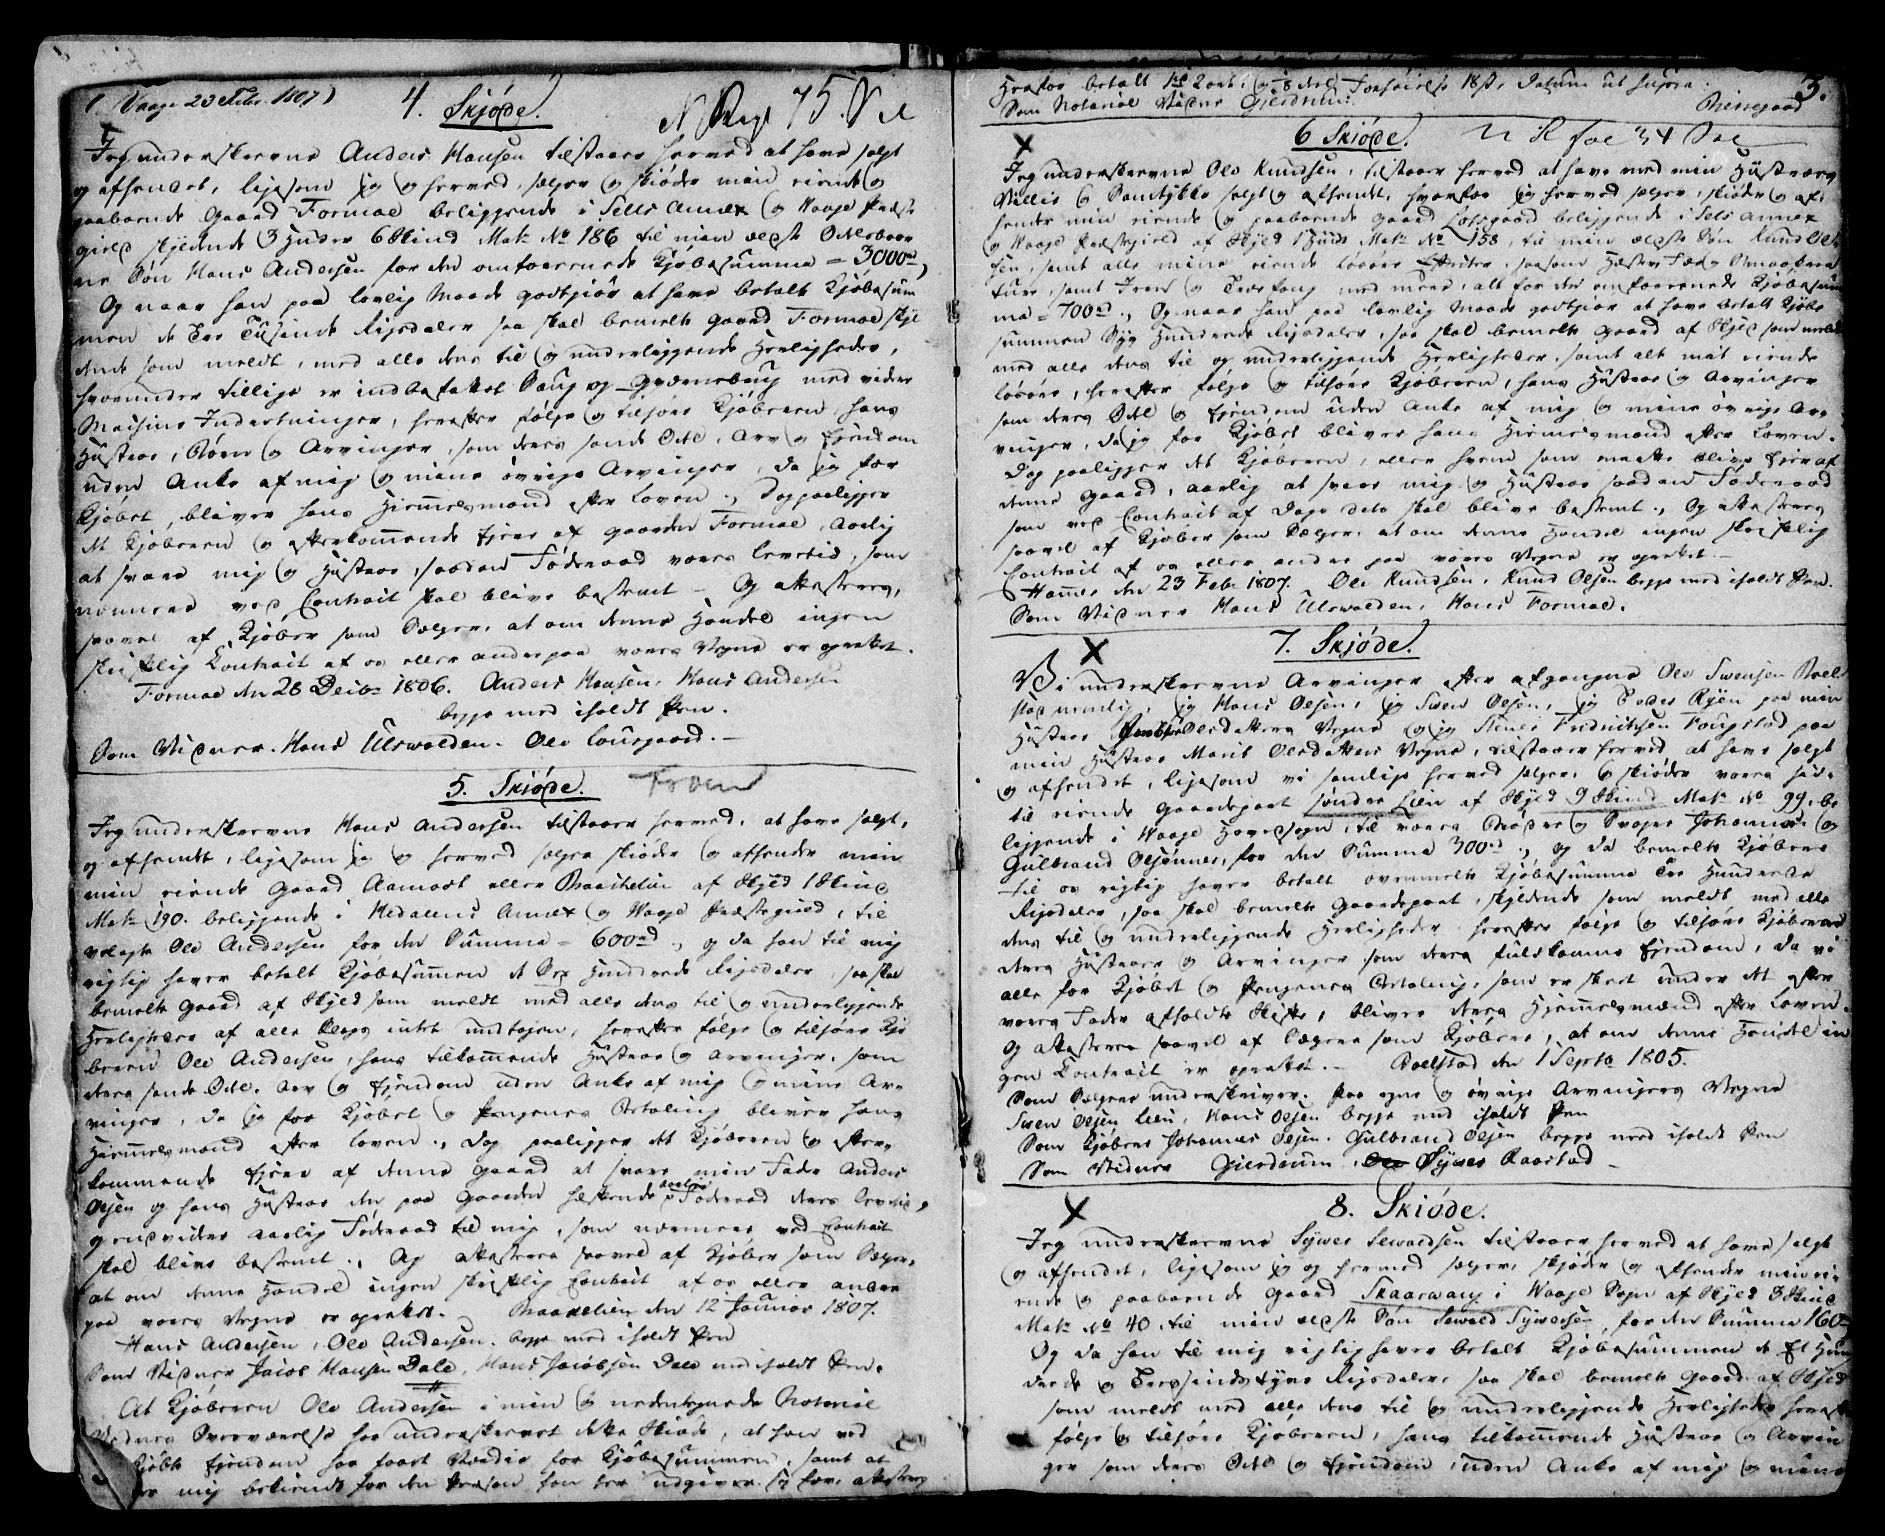 ( Vaage 23 Febr. 1807)
4. Skjøde.
75.
Jeg underskrevne Anders Hansen tilstaaer herved at have solgt
og afhendet, ligesom jeg og herved sælger og skiøder min eiende og
paaboende Gaard Formoe beliggende i Sells Annex og Waage Præste
gield skyldende 3 Huder 6 Skind Matr. No 186 til min ældste Odelsbaar
ne Søn Hans Andersen for den omforenede Kjøbesumma = 3000rd,
Og naar han paa lovlig Maade godtgiør at have betalt Kjøbesum
men de Tre Tusinde Rigsdaler saa skal bemelte Gaard Formoe skyl
dende som meldt, med alle dens til og underliggende Herligheder,
hvorunder tillige er indbefattet Haug og med videre
Indretninger, herefter følge og tilhøre Kjøberen hans
Hustroe, Børn og Arvinger, som deres sande Odel, Arv og Ejendom
uden Anke af mig og mine øvrige Arvinger, da jeg for
Kjøbet, bliver hans Hiemmelsmand efter Loven., Dog paaligger
det Kjøberen og efterkommende Ejere af Gaarden Formoe, aarlig
at svare mig og Hustroe, saadan Føderaad vores Levetid, som
nærmere ved Contract skal blive bestemt - Og attesteres,
saavel af Kjøber som Sælger, at om denne Handel ingen
skriftlig Contract af os eller andre paa vores Vegne er oprettet.
Formoe den 28 Decbr 1806. Anders Hansen, Hans Andersen
begge med iholdt Pen.
Som Vidner. Hans Ulswolden. Ole Lousgaard. -
5. Skiøde. Fron
Jeg underskrevne Hans Andersen tilstaaer herved, at have solgt,
og afhendt, ligesom jeg og herved sælger skiøder og afhender min
min eiende Gaard Aamodt eller Braatelien af Skyld 1 Skind
Matr 190. beliggende i Hedalens Annex og Waage Præstegield, til
Ole Andersen for den Summa = 600rd., og da han til mig
rigtig haver betalt Kjøbesummen de Sex Hundrede Rigsdaler, saa skal
bemelte Gaard af Skyld som meldt med alle dens til og underliggende
Herligheder af alle Slags intet undtagen, herefter følge og tilhøre Kjø
beren Ole Andersen, hans tilkommende Hustroe og Arvinger, som
deres sande Odel, Arv og Ejendom uden Anke af mig og mine Ar-
vinger, da jeg for Kjøbet og Pengenes Betaling bliver hans
Hiemmelsmand efter Loven., Dog paaligger det Kjøberen og efter-
kommende Ejere af denne Gaard at svare min Fader Anders
Olsen og hans Hustroe den paa Gaarden hæftende aarlige Føderaad deres Levetid,
og endvidere aarlig Føderaad til mig, som nærmere ved Contract
skal blive bestemt., Og attesteres saavel af Kjøber som Sælger,
at om denne Handel ingen skriftlig Contract af os eller andre
paa vores Vegne er oprettet. - Braatelien den 12 Januar 1807.
Hans Andersen, Ole Andersen. begge med iholdt Pen
Som Vidner Jacob Hansen Dale, Hans Jacobsen Dale med iholdt Pen.
At Kjøberen Ole Andersen i min og nedentegnede Notarial
Vidners Overværelse har underskrevet dette Skiøde, at han ved
Kjøbte Ejendom har faaet Værdie for Kjøbesummen, samt at
er mig bekiendt for den Person han her udgiver sig for, attesteres
3.
herfor betalt 2 ort, og 8 18 s, Datum ut supra.
Som Notarial Vidner Gierdrum. Bierregaard
6 Skiøde.
Jeg underskrevne Ole Knudsen, tilstaaer herved at have med min Hustroes
Villie og Samtykke solgt og afhendt, hvorfor jeg herved sælger, skiøder og af-
hender min eiende og paaboende Gaard Losgaard beliggende i Sels Annex
og Waage Præstegield af Skyld 1 Huud Matr No 158, til min ældste Søn Knud Ol-
sen, samt alle mine eiende Løsøre Effecter, saasom Hæster, Fæe og Smaakrea
ture, samt Jern og Træefang med mere, alt for den omforenede Kjøbesum
ma = 700rd., Og naar han paa lovlig Maade godtgiør at have betalt Kjøbe
summen Syv Hundrede Rigsdaler, saa skal bemelte Gaard af Skyld som meldt
med alle dens til og underliggende Herligheder, samt alt mit eiende
Løsøre, herefter følge og tilhøre Kjøberen, hans Hustroe og Arvinger
som deres Odel og Ejendom uden Anke af mig og mine øvrige Ar-
vinger, da jeg for Kjøbet bliver hans Hiemmelsmand efter Loven.
Dog paaligger det Kjøberen, eller hvem som maatte blive Ejer af
denne Gaard, aarlig at svare mig og Hustroe saadan Føderaad
som ved Contract af Dags dato skal blive bestemt., Og attesteres
saavel af Kjøber som Sælger, at om denne Handel ingen skriftlig
Contract af os eller andre paa vores Vegne er oprettet. -
den 23 Febr 1807. Ole Knudsen, Knud Olsen begge med iholdt Pen.
Som Vidner Hans Ulswolden, Hans Formoe.
7. Skjøde.
Vi underskrevne Arvinger efter afgangne Ole Swensen Boel
stad nemlig, jeg Hans Olsen, jeg Swen Olsen, jeg Peder Ryen paa min
Hustroe Olsdatters Vegne og jeg Fredrichsen Fougstad paa
min Hustroe Marit Olsdatters Vegne, tilstaaer herved at have solgt
og afhendet, ligesom vi samtlige herved sælger, og skiøder vores had-
til eiende Gaardepart søndre Lien af Skyld 9 Skind Matr No 99, be
liggende i Waage Hovedsogn, til vores Brødre og Svogre Johannes og
Gulbrand Olsønner, for den Summa 300rd., og da bemelte Kjøbere
til os rigtig haver betalt ovenmelte Kjøbesumma Tre Hundrede
Rigsdaler, saa skal bemelte Gaardepart, skyldende som meldt med alle
dens til og underliggende Herligheder herefter følge og tilhøre Kjøberne
deres Hustroer og Arvinger som deres fuldkomne Ejendom, da vi
alle for Kjøbet og Pengenes Betaling, som er skeet under det efter
vores Fader afholdte Skifte, bliver deres Hiemmelsmænd efter Loven.
Og attesteres saavel af Sælgere som Kjøbere, at om denne Handel in
gen Contract er oprettet. - Boelstad den 1 Septb 1805.
Som Sælgere underskriver, paa egne og øvrige Arvingers Vegne
Swen Olsen Lien, Hans Olsen begge med iholdt Pen
Som Kjøbere Johannes Olsen. Gulbrand Olsen begge med iholdt Pen
Som Vidner Gierdrum, Sywer Raastad -
8. Skiøde.
Jeg underskrevne Sywer Sewaldsen tilstaaer herved at have solgt
og afhendet, ligesom jeg og herved sælger, skjøder og afhender min ei-
ende og paaboende Gaard Skaarwang i Waage Sogn af Skyld 3 Skind
Matr No 40 til min ældste Søn Sewald Sywersen, for den Summa 160
Og da han til mig rigtig haver betalt Kjøbesummen de Et Hun
drede og Tresindstyve Rigsdaler, saa skal bemelte Gaard af Skyld
som meldt med alle dens til og underliggende Herligheder herefter
følge og tilhøre Kjøberen, hans tilkommende Hustroe og Arvin
ger som deres Odel og Ejendom, uden Anke af mig og mine